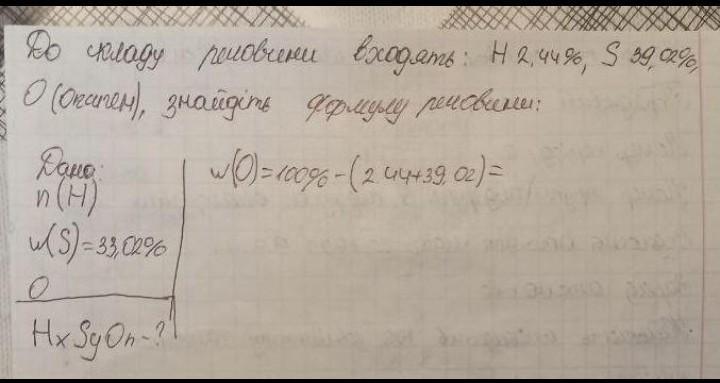 До складу речовини входять: H 2,44%, S 39,02%,
O (Оксиген), знайдіть формулу речовини:
Дано:
n(H)
w(S)=33,02%
O
HxSyOn-?
w(O)=100%-(2.44+39.02)=